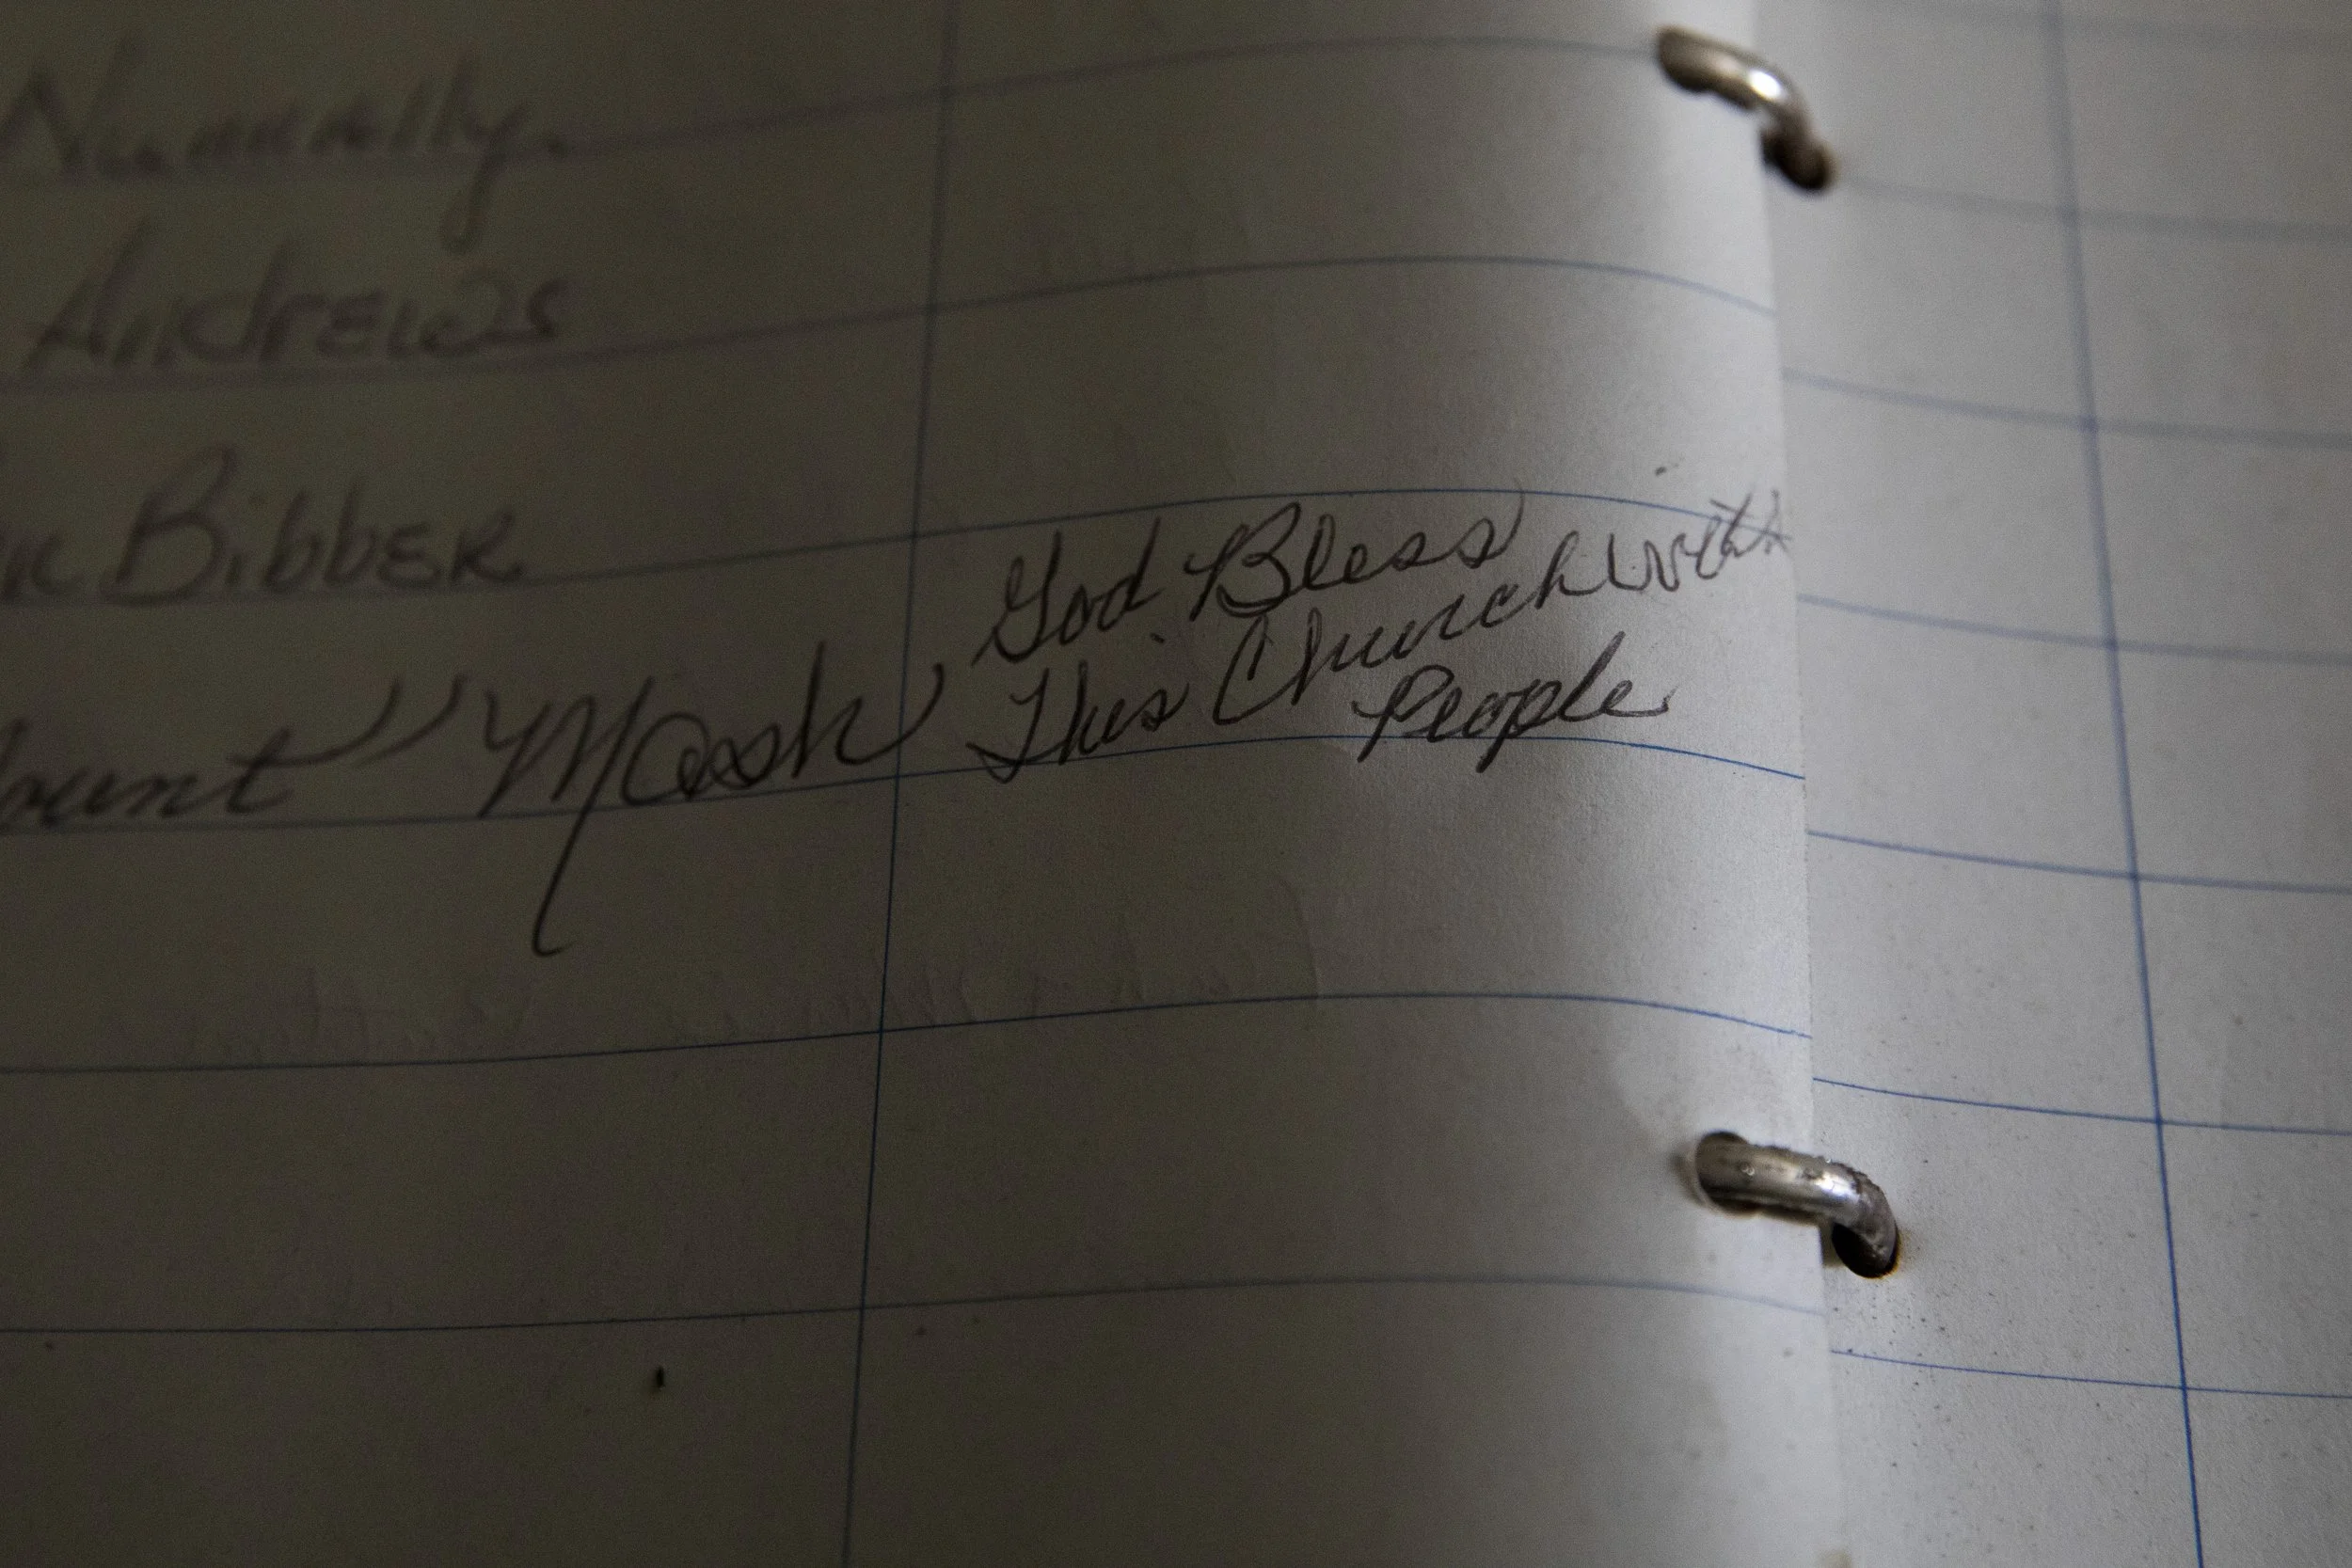 Nunnally.
AndrEws
Bibber
" Mash God Bless
This Church with
People